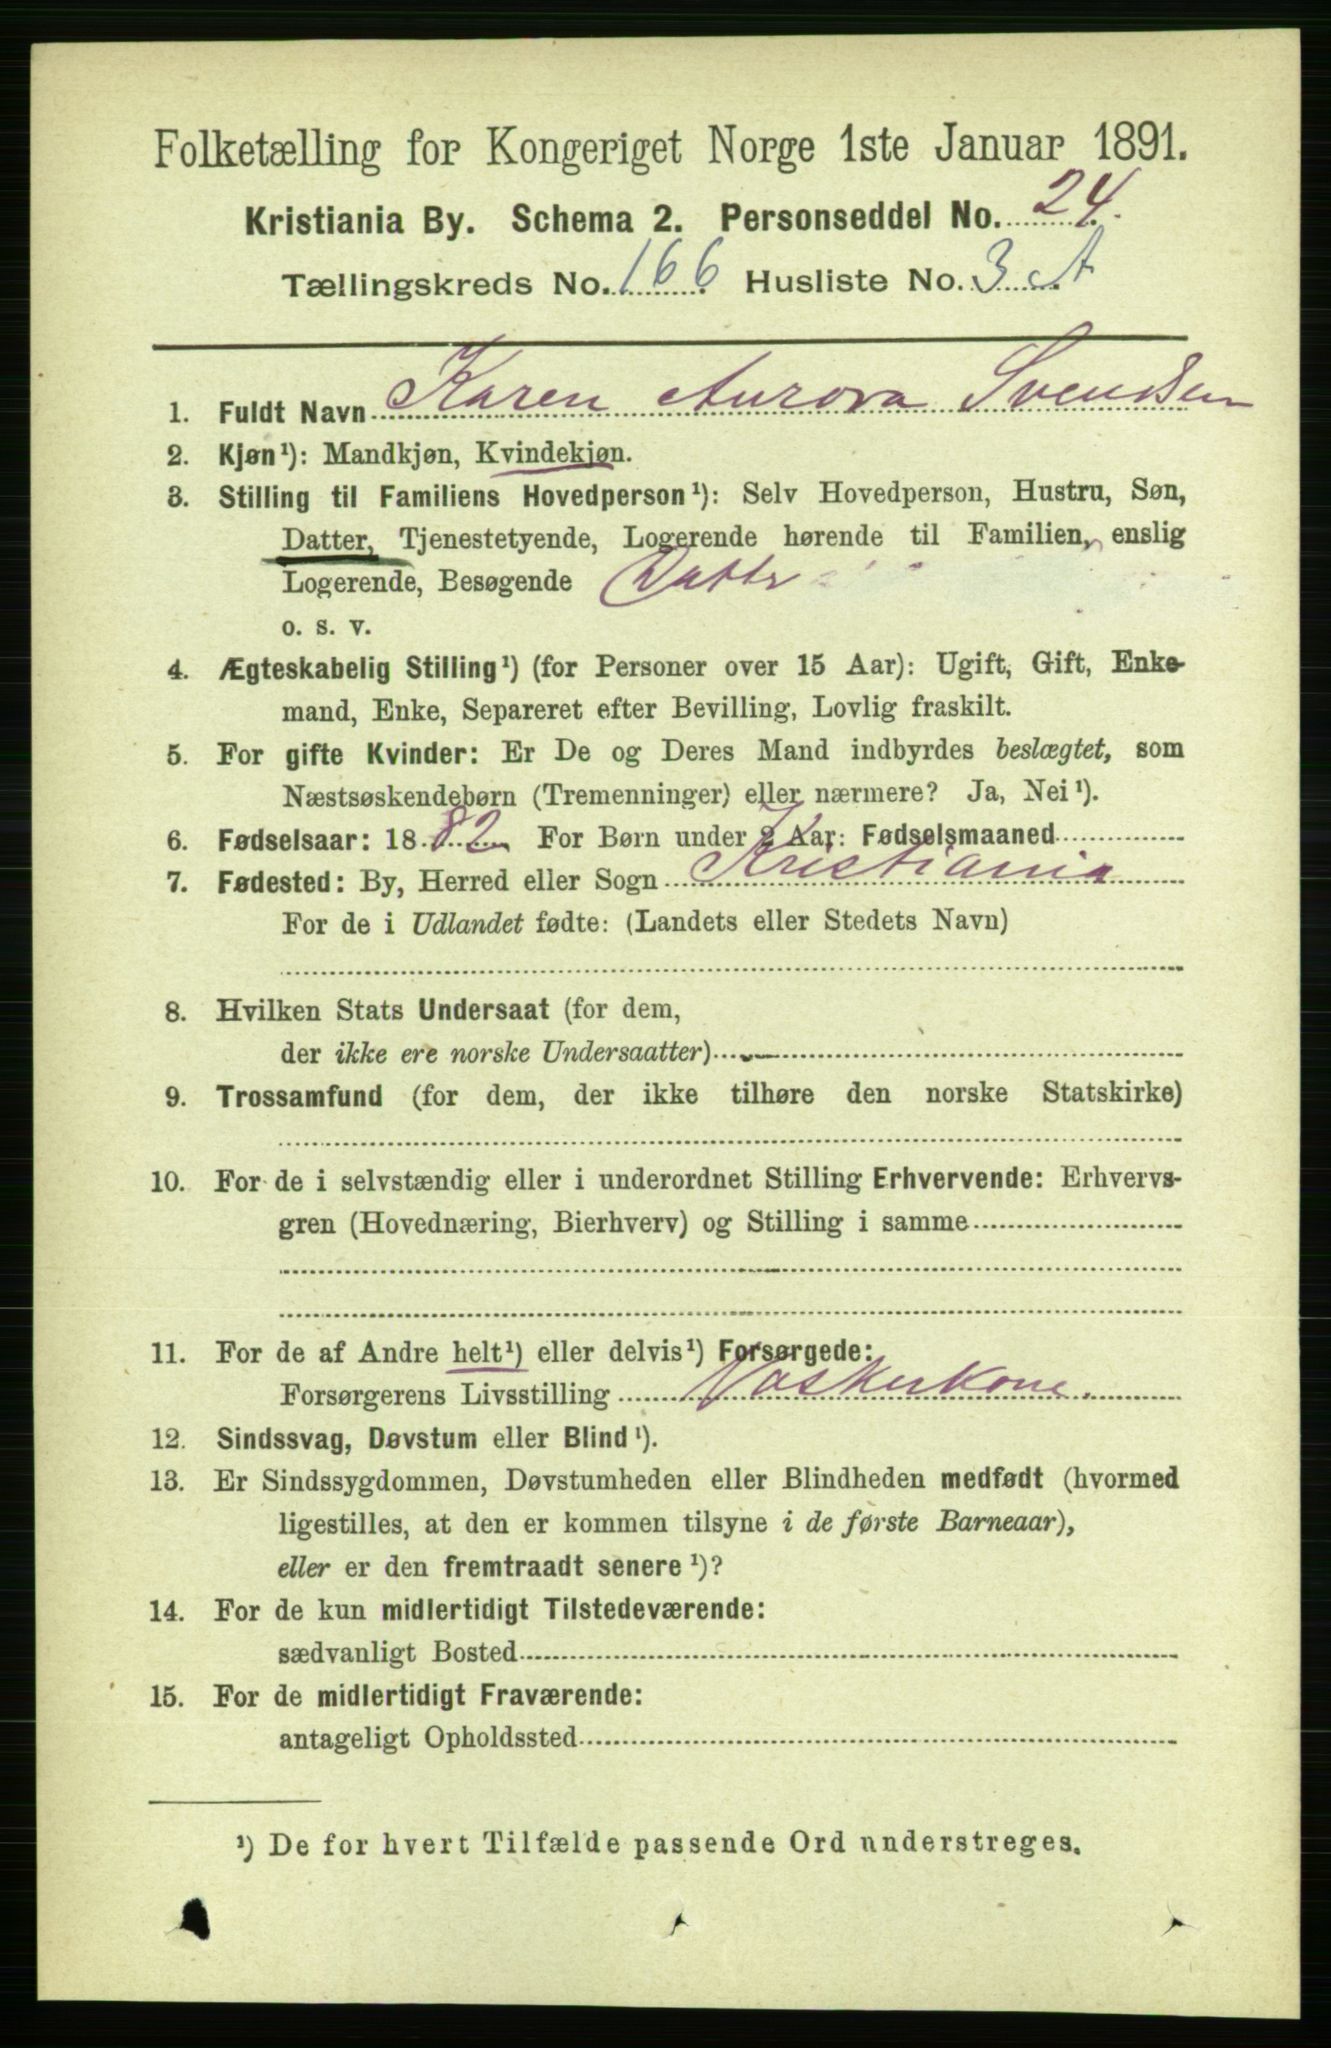 Folketælling for Kongeriget Norge 1ste Januar 1891.
Kristiania By. Schema 2. Personseddel No. 24.
Tællingskreds No. 166 Husliste No. 3 A
1. Fuldt Navn Karen Aurora Svendsen
2. Kjøn¹): Mandkjøn, Kvindekjøn.
3. Stilling til Familiens Hovedperson¹): Selv Hovedperson, Hustru, Søn,
Datter, Tjenestetyende, Logerende hørende til Familien, enslig
Logerende, Besøgende Datter
o. s. v.
4. Ægteskabelig Stilling¹) (for Personer over 15 Aar): Ugift, Gift, Enke-
mand, Enke, Separeret efter Bevilling, Lovlig fraskilt.
5. For gifte Kvinder: Er De og Deres Mand indbyrdes beslægtet, som
Næstsøskendebørn (Tremenninger) eller nærmere? Ja, Nei¹).
6. Fødselsaar: 1882 For Børn under 2 Aar: Fødselsmaaned
7. Fødested: By, Herred eller Sogn Kristiania
For de i Udlandet fødte: (Landets eller Stedets Navn)
8. Hvilken Stats Undersaat (for dem,
der ikke ere norske Undersaatter)
9. Trossamfund (for dem, der ikke tilhøre den norske Statskirke)
10. For de i selvstændig eller i underordnet Stilling Erhvervende: Erhvervs-
gren (Hovednæring, Bierhverv) og Stilling i samme
11. For de af Andre helt¹) eller delvis¹) Forsørgede:
Forsørgerens Livsstilling Vaskerkone.
12. Sindssvag, Døvstum eller Blind¹).
13. Er Sindssygdommen, Døvstumheden eller Blindheden medfødt (hvormed
ligestilles, at den er kommen tilsyne i de første Barneaar),
eller er den fremtraadt senere¹)?
14. For de kun midlertidigt Tilstedeværende:
sædvanligt Bosted
15. For de midlertidigt Fraværende:
antageligt Opholdssted
¹) De for hvert Tilfælde passende Ord understreges.